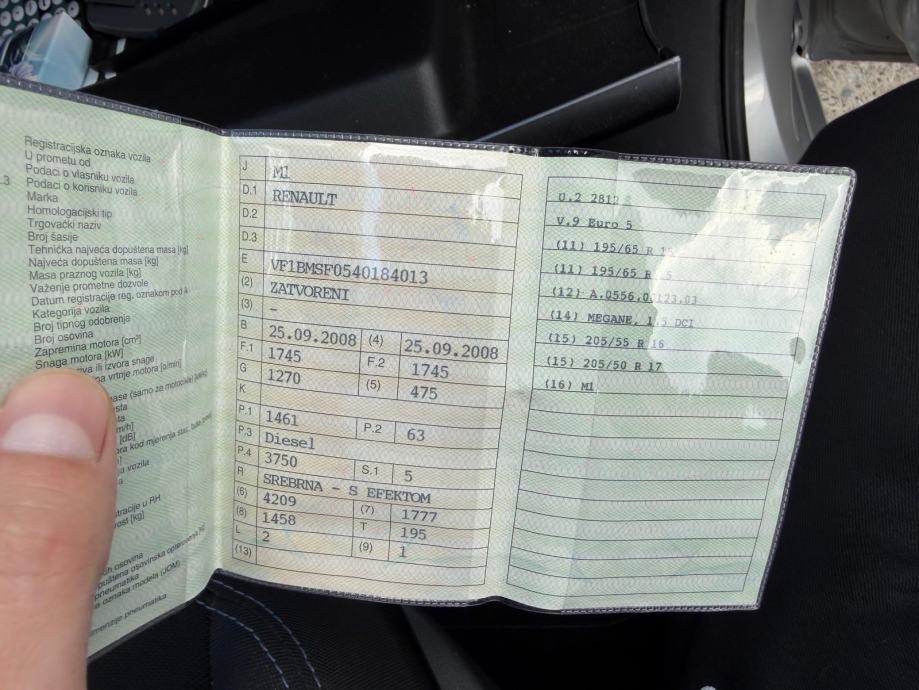 Registracijska oznaka vozila
U prometu od
Podaci o vlasniku vozila
.3 Podaci o korisniku vozila
Marka
Homologacijski tip
Trgovački naziv
Broj šasije
Tehnička najveća dopuštena masa [kg]
Najveća dopuštena masa [kg]
Masa praznog vozila [kg]
Važenje prometne dozvole
Datum registracije reg. oznakom pod A
Kategorija vozila
Broj tipnog odobrenja
Broj osovina
Zapremina motora [cm³]
Snaga motora [kW]
iva ili izvora snage
na vrtnje motora [o/min]
[dB]
vozila
u RH
[kg]
osovina
pneumatika
oznaka modela (JOM)
pneumatika
J M1
D.1 RENAULT
D.2
D.3
E VF1BMSF0540184013
(2) ZATVORENI
(3) –
B 25.09.2008 (4) 25.09.2008
F.1 1745 F.2 1745
G 1270 (5) 475
K
P.1 1461 P.2 63
P.3 Diesel
P.4 3750 S.1 5
R SREBRNA - S EFEKTOM
(6) 4209 (7) 1777
(8) 1458 T 195
L 2 (9) 1
(13)
U.2 2812
V.9 Euro 5
(11) 195/65 R
(11) 195/65 R
(12)
(14) MEGANE, DCI
(15) 205/55 R 16
(15) 205/50 R 17
(16) M1